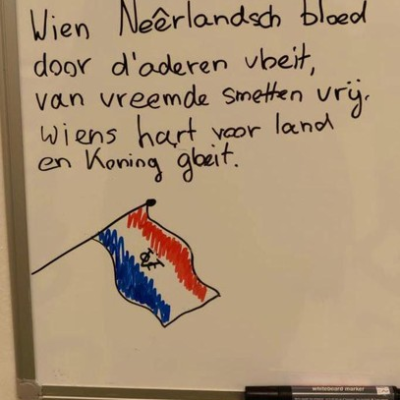 Wien Neêrlandsch bloed
door d'aderen vbeit,
van vreemde smetten vrij.
Wiens hart voor land
en Koning gbeit.
whiteboard marker